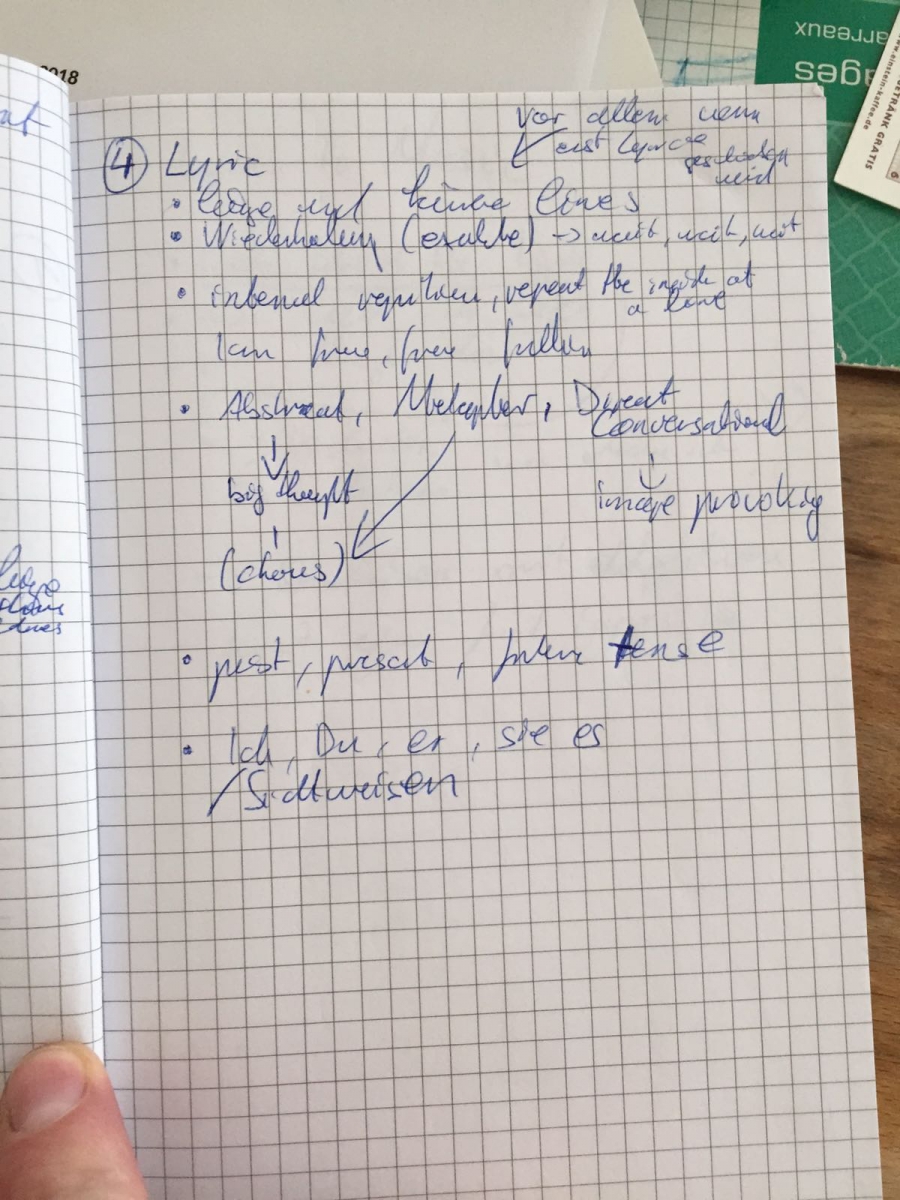 2018
arreaux
ages
www.einstein-kaffee.de
GETRÄNK GRATIS
6
vor allem wenn
erst Lyrics
geschrieben
wird
4 Lyric
• lange und kurze lines
• Wiederholung (exakte) -> weit, weit, weit
• internal repitition, repeat the inside of
a line
I am free, free fallin
• Abstract, Metapher, Direct
Conversational
big thought
image provoking
(chorus)
• past, present, future tense
• Ich, Du, er, sie es
/Sichtweisen
lange